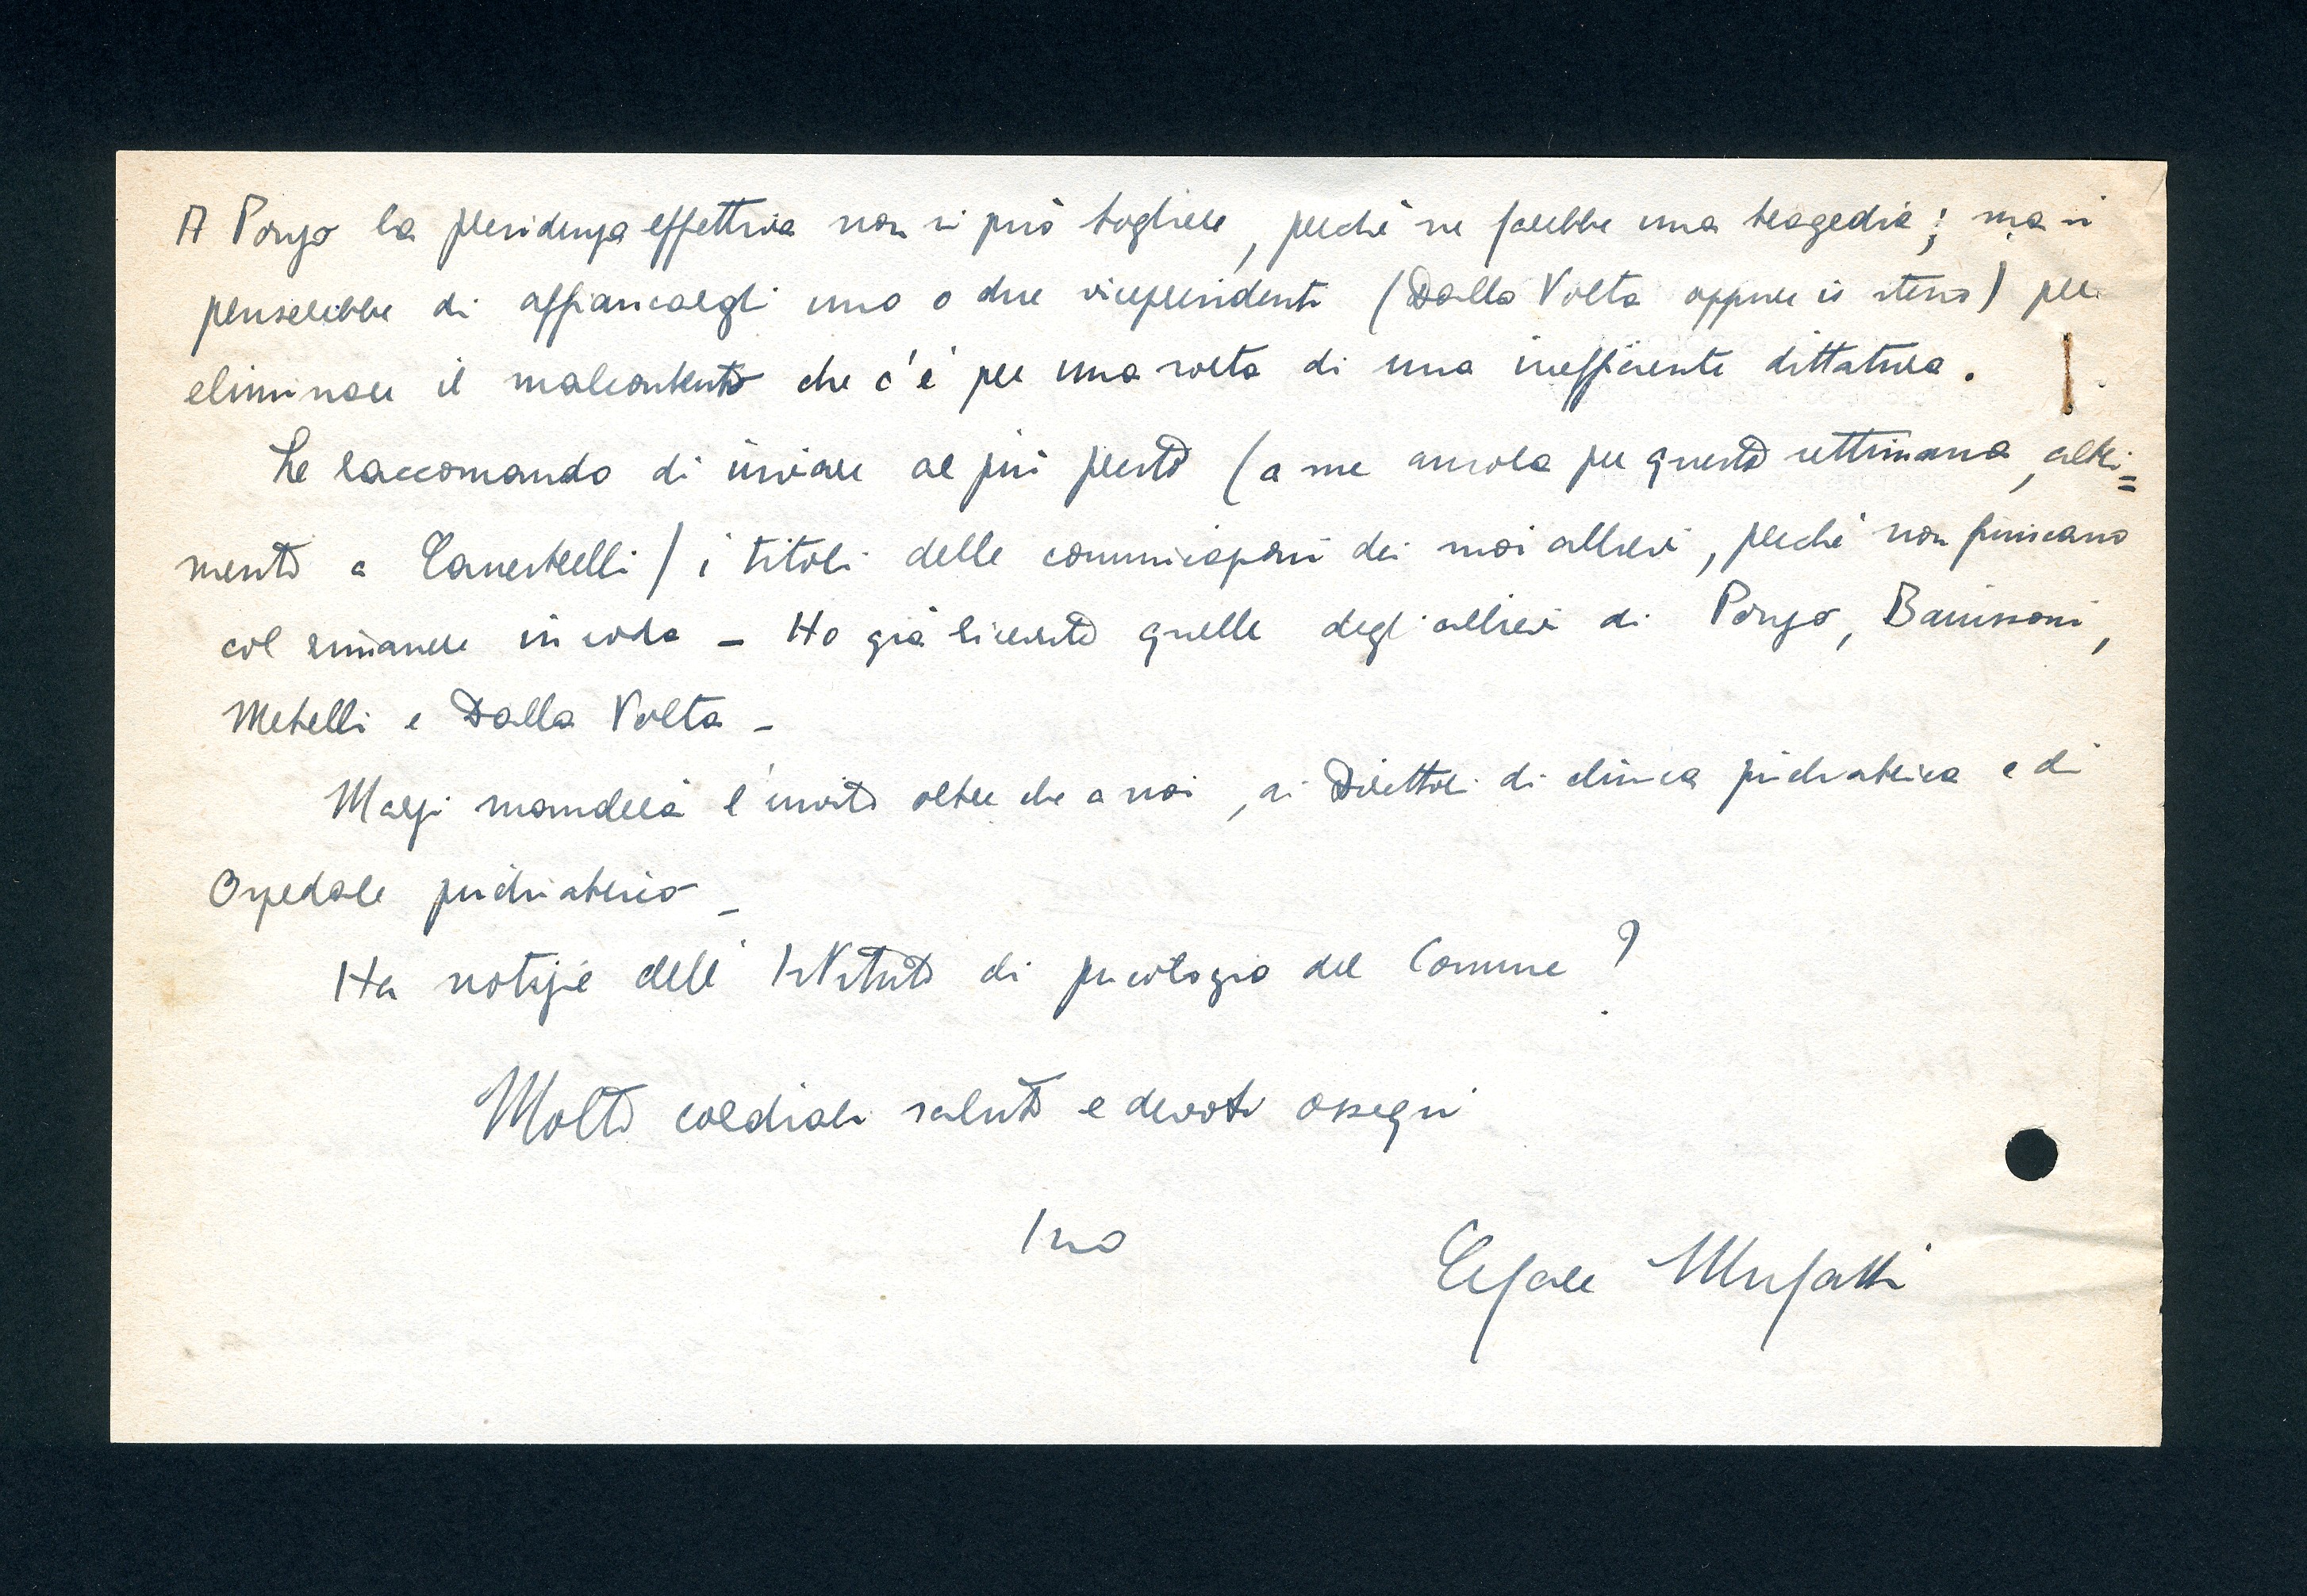 A Ponzo la presidenza effettiva non si può togliere, perché ne farebbe una tragedia; ma si
penserebbe di affiancargli uno o due vicepresidenti (Dalla Volta oppure io stesso) per
eliminare il malcontento che c'è per una sorta di una inefficiente dittatura.
Le raccomando di inviare al più presto (a me ancora per questa settimana, altri=
menti a Canestrelli) i titoli delle comunicazioni dei suoi allievi, perché non finiscano
col rimanere in coda - Ho già ricevuto quelle degli allievi di Ponzo, Banissoni,
Metelli e Dalla Volta -
Marzi manderà l'invito oltre che a noi, ai Direttori di clinica psichiatrica e di
Ospedale psichiatrico -
Ha notizie dell'Istituto di psicologia del Comune?
Molti cordiali saluti e devoti ossequi
Suo Cesare Musatti